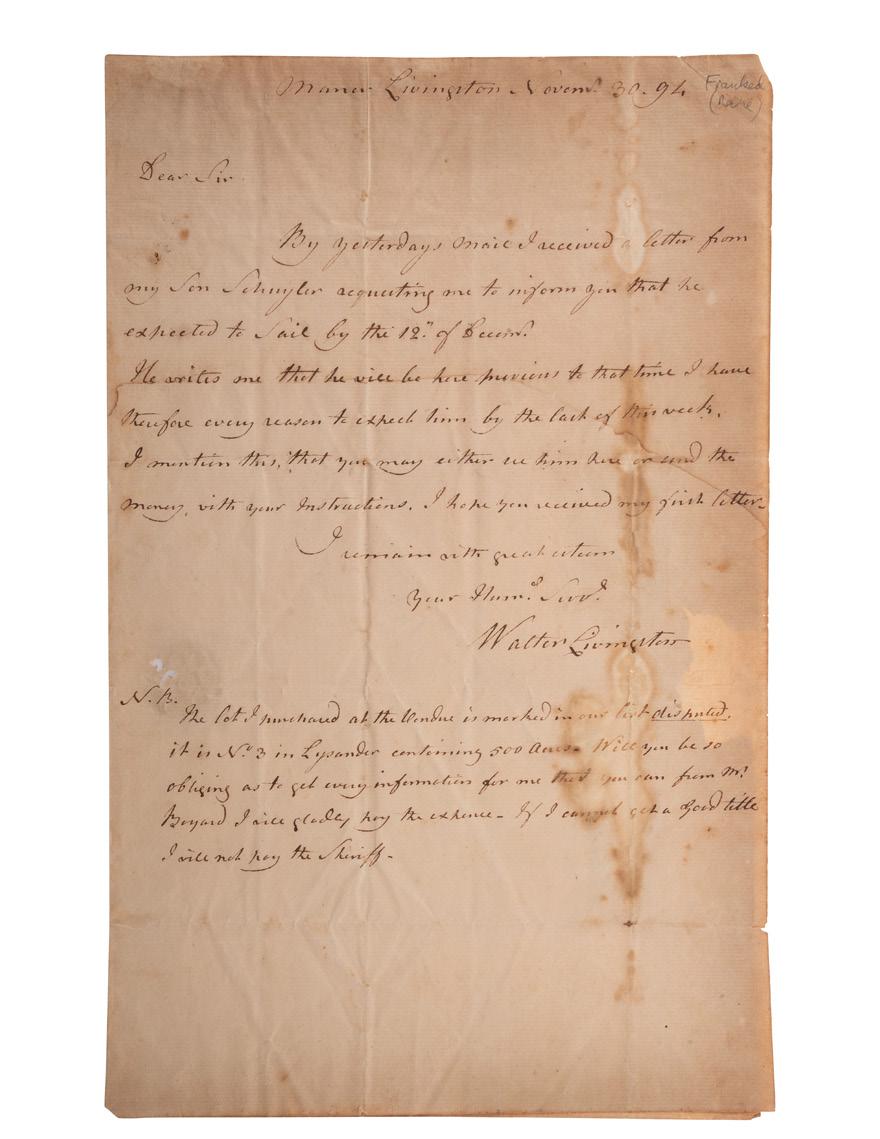 Manor Livingston Novemr. 30. 94
Franked
(Rare)
Dear Sir
By yesterdays mail I received a letter from
my Son Schuyler requesting me to inform you that he
expected to Sail by the 12" of Decemr.
He writes me that he will be here previous to that time I have
therefore every reason to expect him by the last of this week.
I mention this, that you may either see him here or send the
money, with your Instructions. I hope you received my first letter-
I remain with great esteem
Your Humle. Servt.
Walter Livingston
N.B.
The lot I purchased at the Vendue is marked in our list disputed.
it is No. 3 in Lysander containing 500 Acres- Will you be so
obliging as to get every information for me that you can from Mr.
Bayard I will gladly pay the expence- If I cannot get a good title
I will not pay the Sheriff-